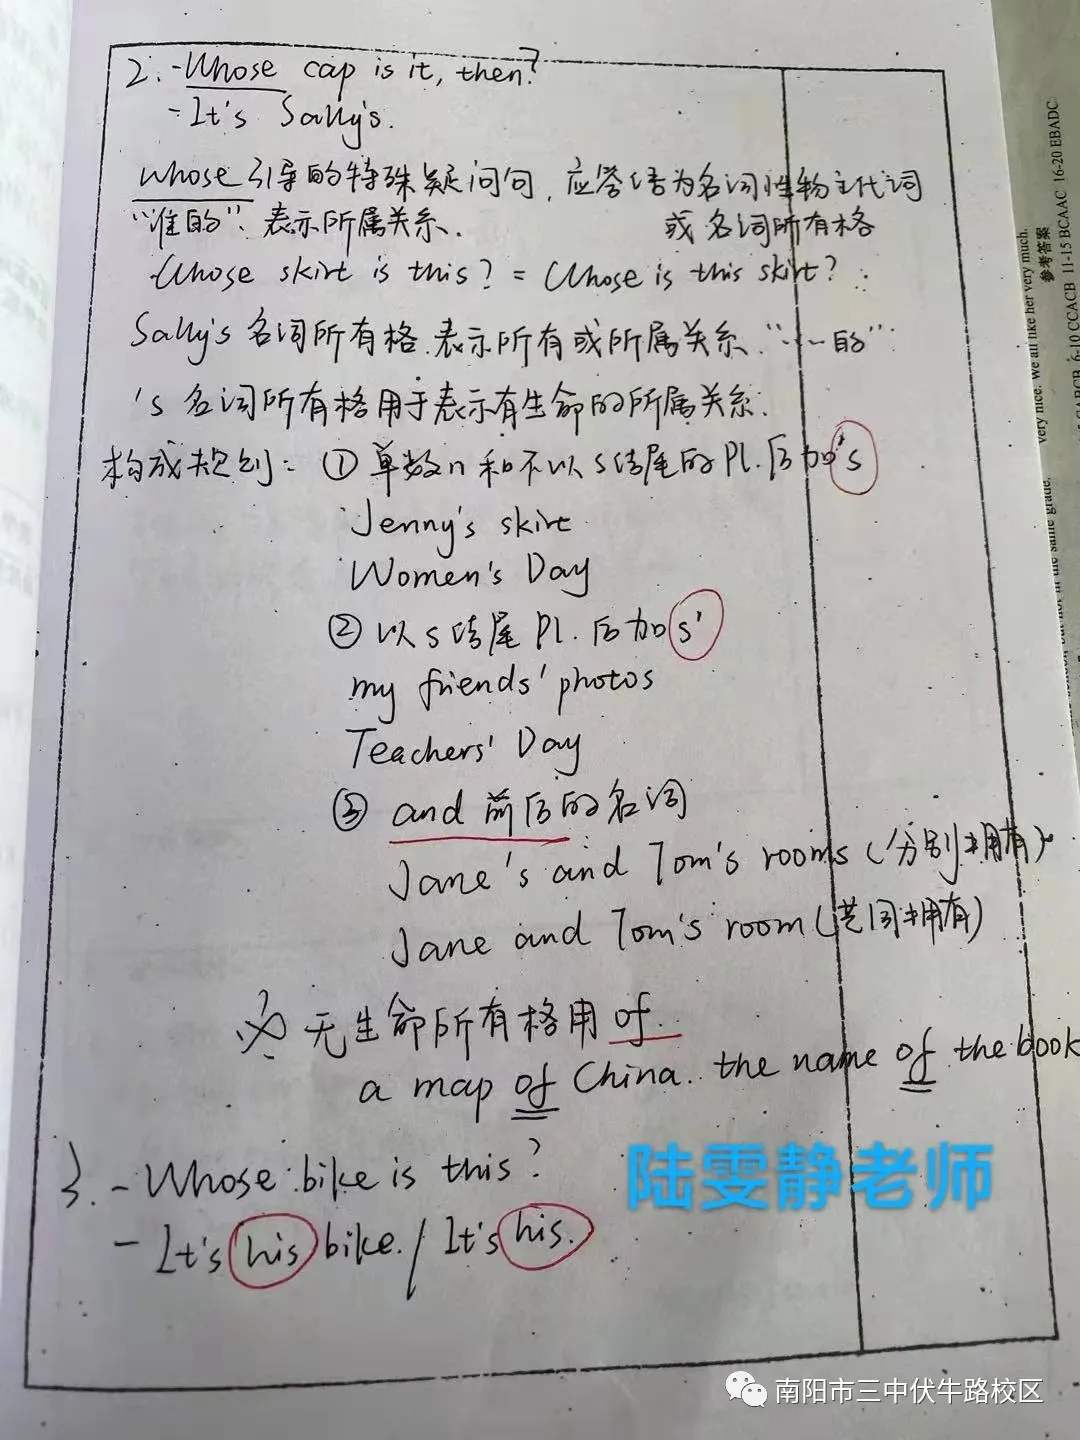 2. -Whose cap is it, then?
- It's Sally's.
whose引导的特殊疑问句, 应答语为名词性物主代词
“谁的”、表示所属关系. 或名词所有格
Whose skirt is this? = Whose is this skirt?
Sally's 名词所有格.表示所有或所属关系.“……的”
's 名词所有格用于表示有生命的所属关系.
构成规则: ① 单数n 和不以s结尾的Pl.后加's
Jenny's skirt
Women's Day
② 以s结尾Pl.后加s'
my friends' photos
Teachers' Day
③ and前后的名词
Jane's and Tom's rooms (分别拥有)
Jane and Tom's room (共同拥有)
※ 无生命所有格用of.
a map of China. the name of the book
3. - Whose bike is this?
- It's his bike. / It's his.
陆雯静老师
南阳市三中伏牛路校区
very nice. We all like her very much.
参考答案
6-10 CCACB 11-15 BCAAC 16-20 EBADC
in the same grade.